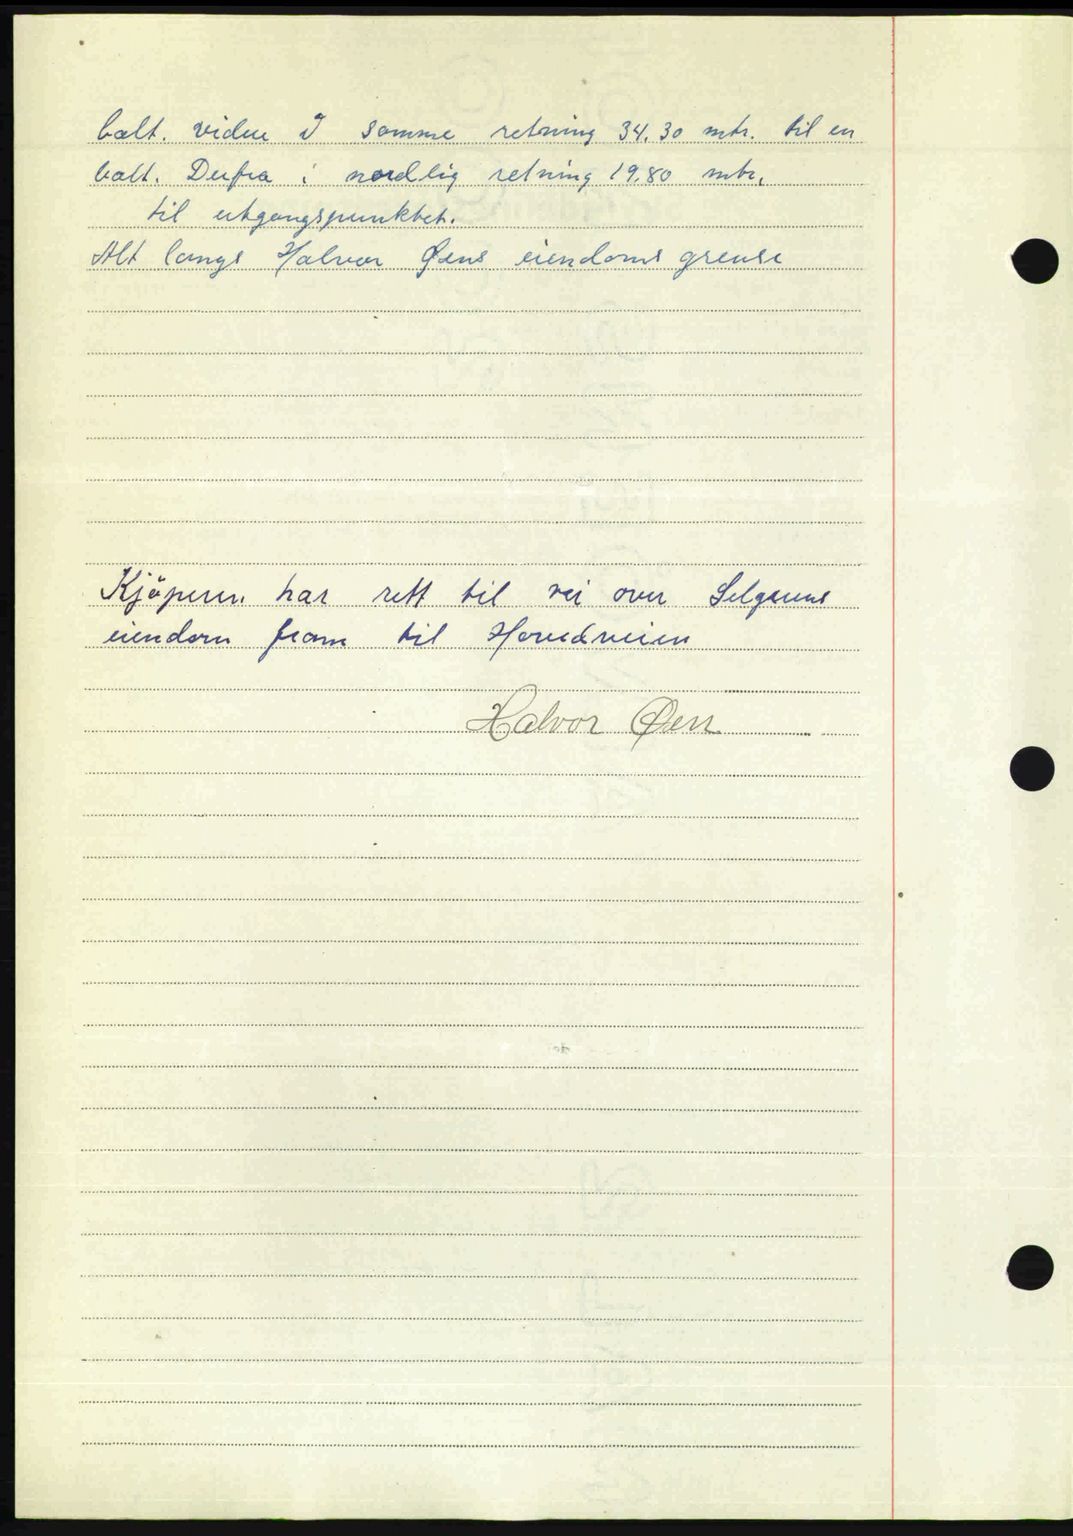 bolt. videre I samme retning 34.30 mtr. til en
bolt. Derfra i nordlig retning 19.80 mtr.
til utgangspunktet.
Alt langs Halvor Øens eiendoms grense
Kjöperen har rett til vei over Selgerens
eiendom fram til Hovedveien
Halvor Øen